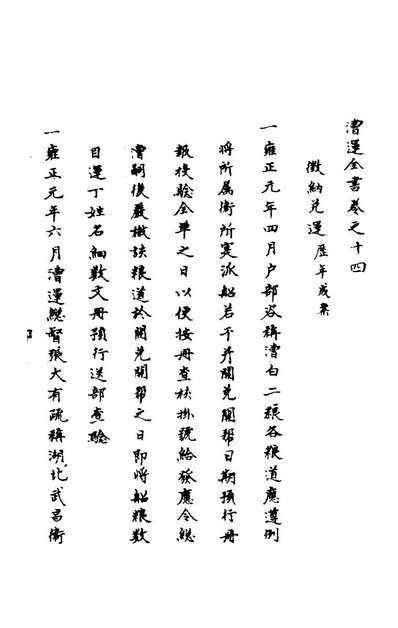 漕運全書卷之十四
徵納兌運 歷年成案
一雍正元年四月户部咨稱漕白二糧各糧道應遵例
將所属衛所寔派船若干并開兌開幫日期預行册
報投驗全单之日以便按册查核掛號給發應令總
漕嗣後嚴檄該糧道於開兌開幫之日即將船糧数
目運丁姓名細数文册預行送部查驗
一雍正元年六月漕運總督張大有疏稱湖北武昌衛